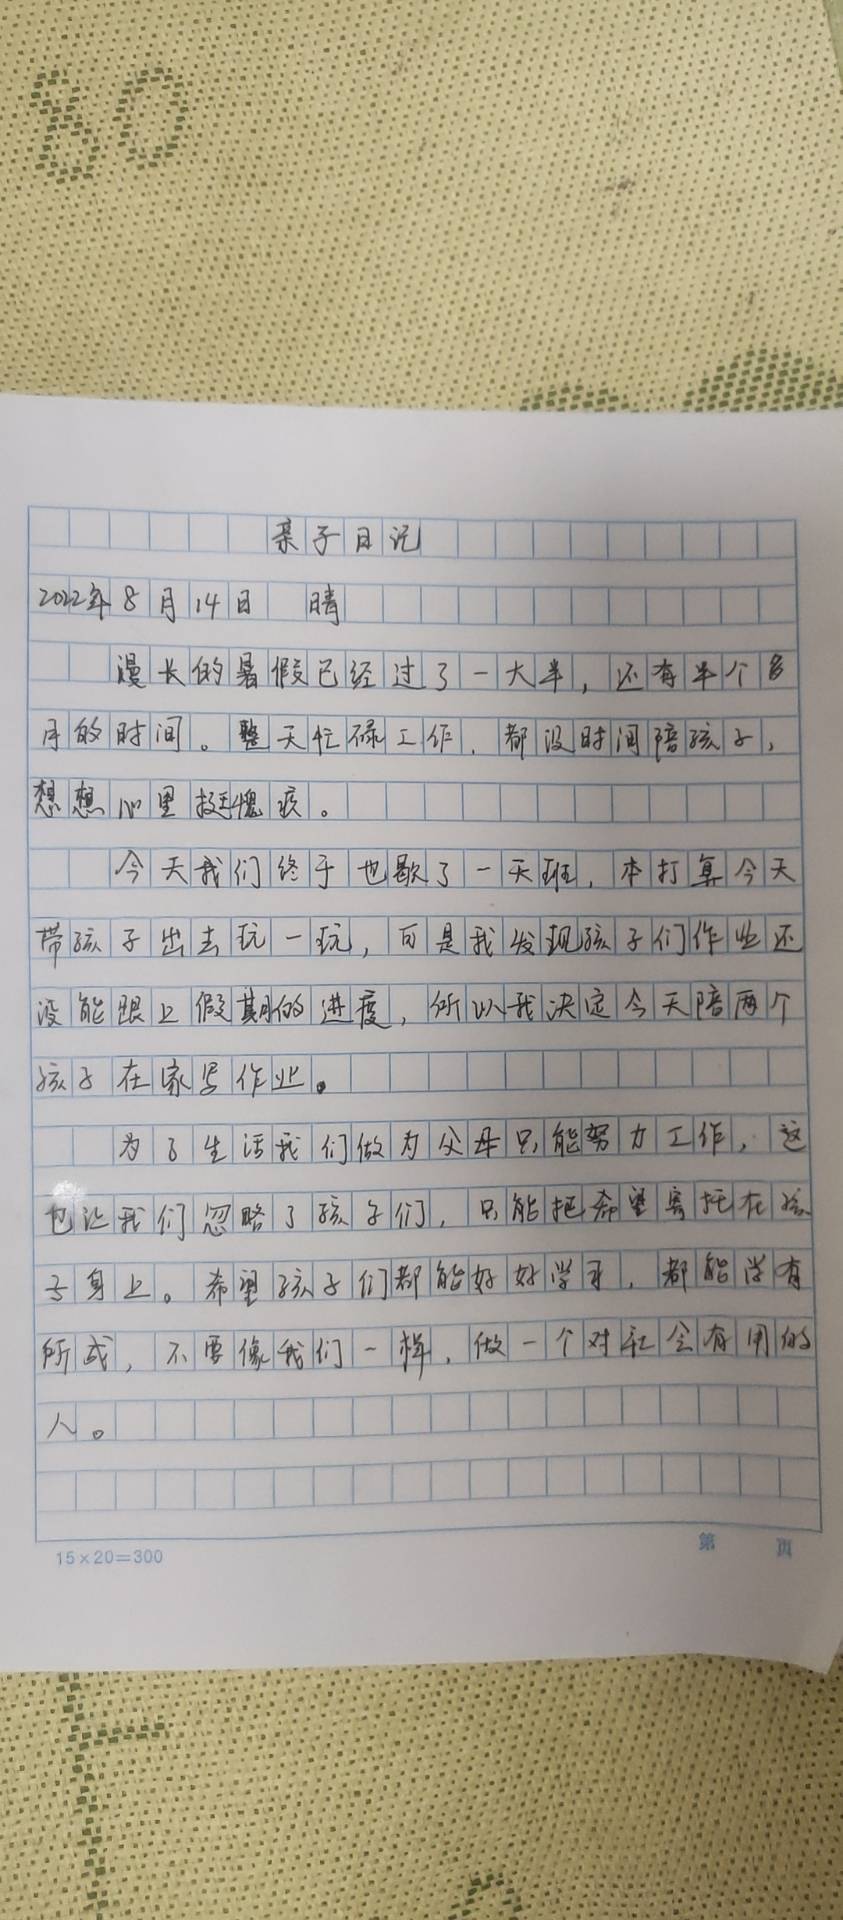 80
亲子日记
2022年8月14日 晴
漫长的暑假已经过了一大半，还有半个多
月的时间。整天忙碌工作，都没时间陪孩子，
想想心里挺愧疚。
今天我们终于也歇了一天班，本打算今天
带孩子出去玩一玩，可是我发现孩子们作业还
没能跟上假期的进度，所以我决定今天陪两个
孩子在家写作业。
为了生活我们做为父母只能努力工作，这
也让我们忽略了孩子们，只能把希望寄托在孩
子身上。希望孩子们都能好好学习，都能学有
所成，不要像我们一样，做一个对社会有用的
人。
15×20=300 第 页